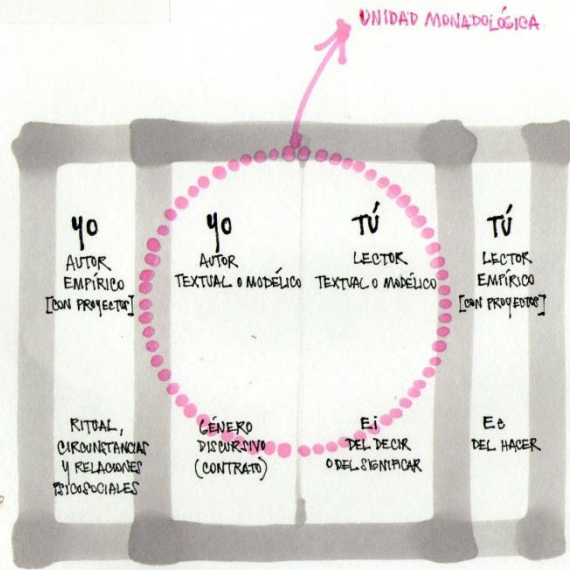 UNIDAD MONADOLÓGICA
YO
AUTOR
EMPÍRICO
[CON PROYECTOS]
YO
AUTOR
TEXTUAL O MODÉLICO
TÚ
LECTOR
TEXTUAL O MODÉLICO
TÚ
LECTOR
EMPÍRICO
[CON PROYECTOS]
RITUAL,
CIRCUNSTANCIAS
Y RELACIONES
PSICOSOCIALES
GÉNERO
DISCURSIVO
(CONTRATO)
Ei
DEL DECIR
O DEL SIGNIFICAR
Ee
DEL HACER